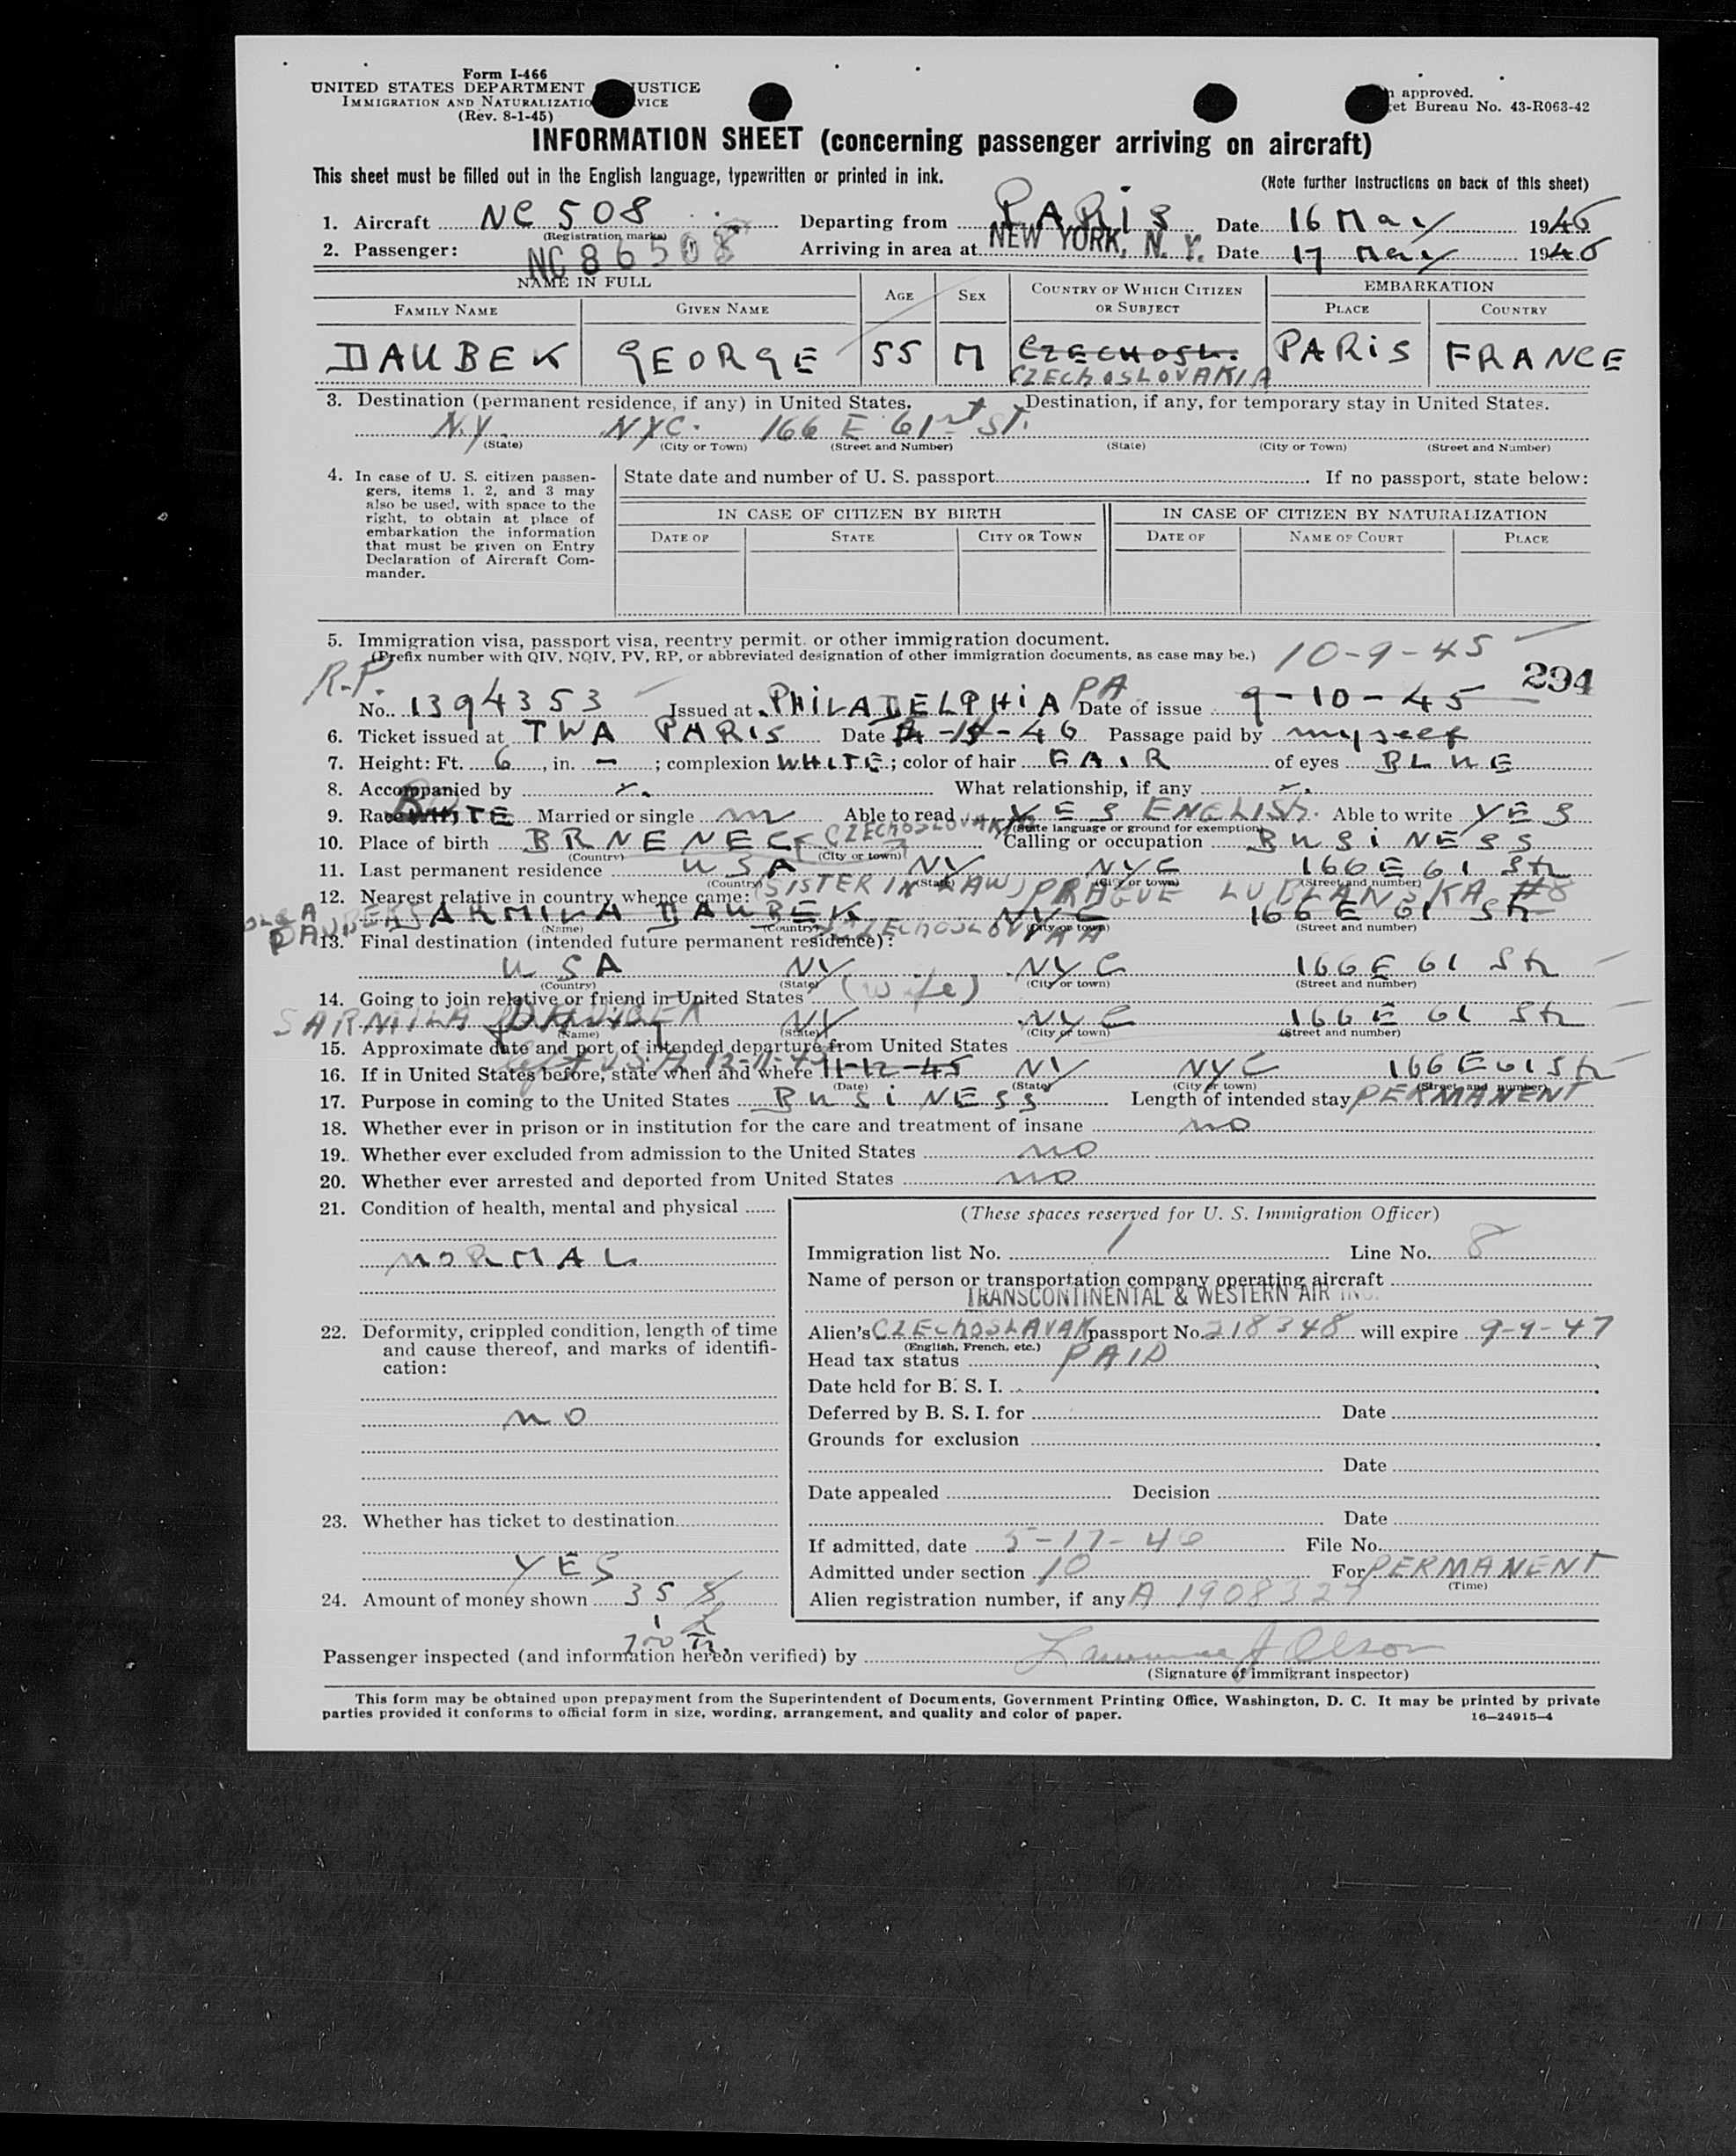 Form I-466
UNITED STATES DEPARTMENT USTICE
IMMIGRATION AND NATURALIZATIO VICE
(Rev. 8-1-45)
n approved.
et Bureau No. 43-R063-42
INFORMATION SHEET (concerning passenger arriving on aircraft)
This sheet must be filled out in the English language, typewritten or printed in ink.
(Note further instructions on back of this sheet)
1. Aircraft NC 508 Departing from PARIS Date 16 May 1946
(Registration marks)
2. Passenger: NC 86508 Arriving in area at NEW YORK, N. Y. Date 17 May 1946
NAME IN FULL AGE SEX COUNTRY OF WHICH CITIZEN OR SUBJECT EMBARKATION
FAMILY NAME GIVEN NAME PLACE COUNTRY
DAUBEK GEORGE 55 M CZECHOSL. PARIS FRANCE
CZECHOSLOVAKIA
3. Destination (permanent residence, if any) in United States. Destination, if any, for temporary stay in United States.
N.Y. NYC. 166 E 61st ST.
(State) (City or Town) (Street and Number) (State) (City or Town) (Street and Number)
4. In case of U. S. citizen passen-
gers, items 1, 2, and 3 may
also be used, with space to the
right, to obtain at place of
embarkation the information
that must be given on Entry
Declaration of Aircraft Com-
mander.
State date and number of U. S. passport If no passport, state below:
IN CASE OF CITIZEN BY BIRTH IN CASE OF CITIZEN BY NATURALIZATION
DATE OF STATE CITY OR TOWN DATE OF NAME OF COURT PLACE
5. Immigration visa, passport visa, reentry permit, or other immigration document.
(Prefix number with QIV, NQIV, PV, RP, or abbreviated designation of other immigration documents, as case may be.) 10-9-45
294
R.P.
No. 1394353 Issued at PHILADELPHIA PA Date of issue 9-10-45
6. Ticket issued at TWA PARIS Date Passage paid by myself
7. Height: Ft. 6, in. –; complexion WHITE; color of hair FAIR of eyes BLUE
8. Accompanied by What relationship, if any
9. Race Married or single m Able to read YES ENGLISH. Able to write YES
(State language or ground for exemption)
10. Place of birth BRNENEC CZECHOSLOVAKIA Calling or occupation BUSINESS
(Country) (City or town)
11. Last permanent residence USA NY NYC 166 E 61 Str
(Country) (State) (City or town) (Street and number)
12. Nearest relative in country whence came: (SISTER IN LAW) PRAGUE LUBLANSKA #8
OLGA DAUBEK JARMILA DAUBEK CZECHOSLOVAKIA NYC 166 E 61 Str
(Name) (Country) (City or town) (Street and number)
13. Final destination (intended future permanent residence):
USA NY NYC 166 E 61 Str
(Country) (State) (City or town) (Street and number)
14. Going to join relative or friend in United States (wife)
SARMILA DAUBEK NY NYC 166 E 61 Str
(Name) (State) (City or town) (Street and number)
15. Approximate date and port of intended departure from United States
Left USA
16. If in United States before, state when and where 11-12-45 NY NYC 166 E 61 Str
(Date) (State) (City or town) (Street and number)
17. Purpose in coming to the United States BUSINESS Length of intended stay PERMANENT
18. Whether ever in prison or in institution for the care and treatment of insane no
19. Whether ever excluded from admission to the United States no
20. Whether ever arrested and deported from United States no
21. Condition of health, mental and physical
NORMAL
22. Deformity, crippled condition, length of time
and cause thereof, and marks of identifi-
cation:
no
23. Whether has ticket to destination
YES
24. Amount of money shown 35 $
(These spaces reserved for U. S. Immigration Officer)
Immigration list No. 1 Line No. 8
Name of person or transportation company operating aircraft
TRANSCONTINENTAL & WESTERN AIR INC.
Alien's CZECHOSLAVAK passport No. 218348 will expire 9-9-47
(English, French, etc.)
Head tax status PAID
Date held for B. S. I.
Deferred by B. S. I. for Date
Grounds for exclusion
Date
Date appealed Decision
Date
If admitted, date 5-17-46 File No.
Admitted under section 10 For PERMANENT
(Time)
Alien registration number, if any A 1908327
Passenger inspected (and information hereon verified) by Lawrence J Olson
(Signature of immigrant inspector)
This form may be obtained upon prepayment from the Superintendent of Documents, Government Printing Office, Washington, D. C. It may be printed by private
parties provided it conforms to official form in size, wording, arrangement, and quality and color of paper.
16—24915-4